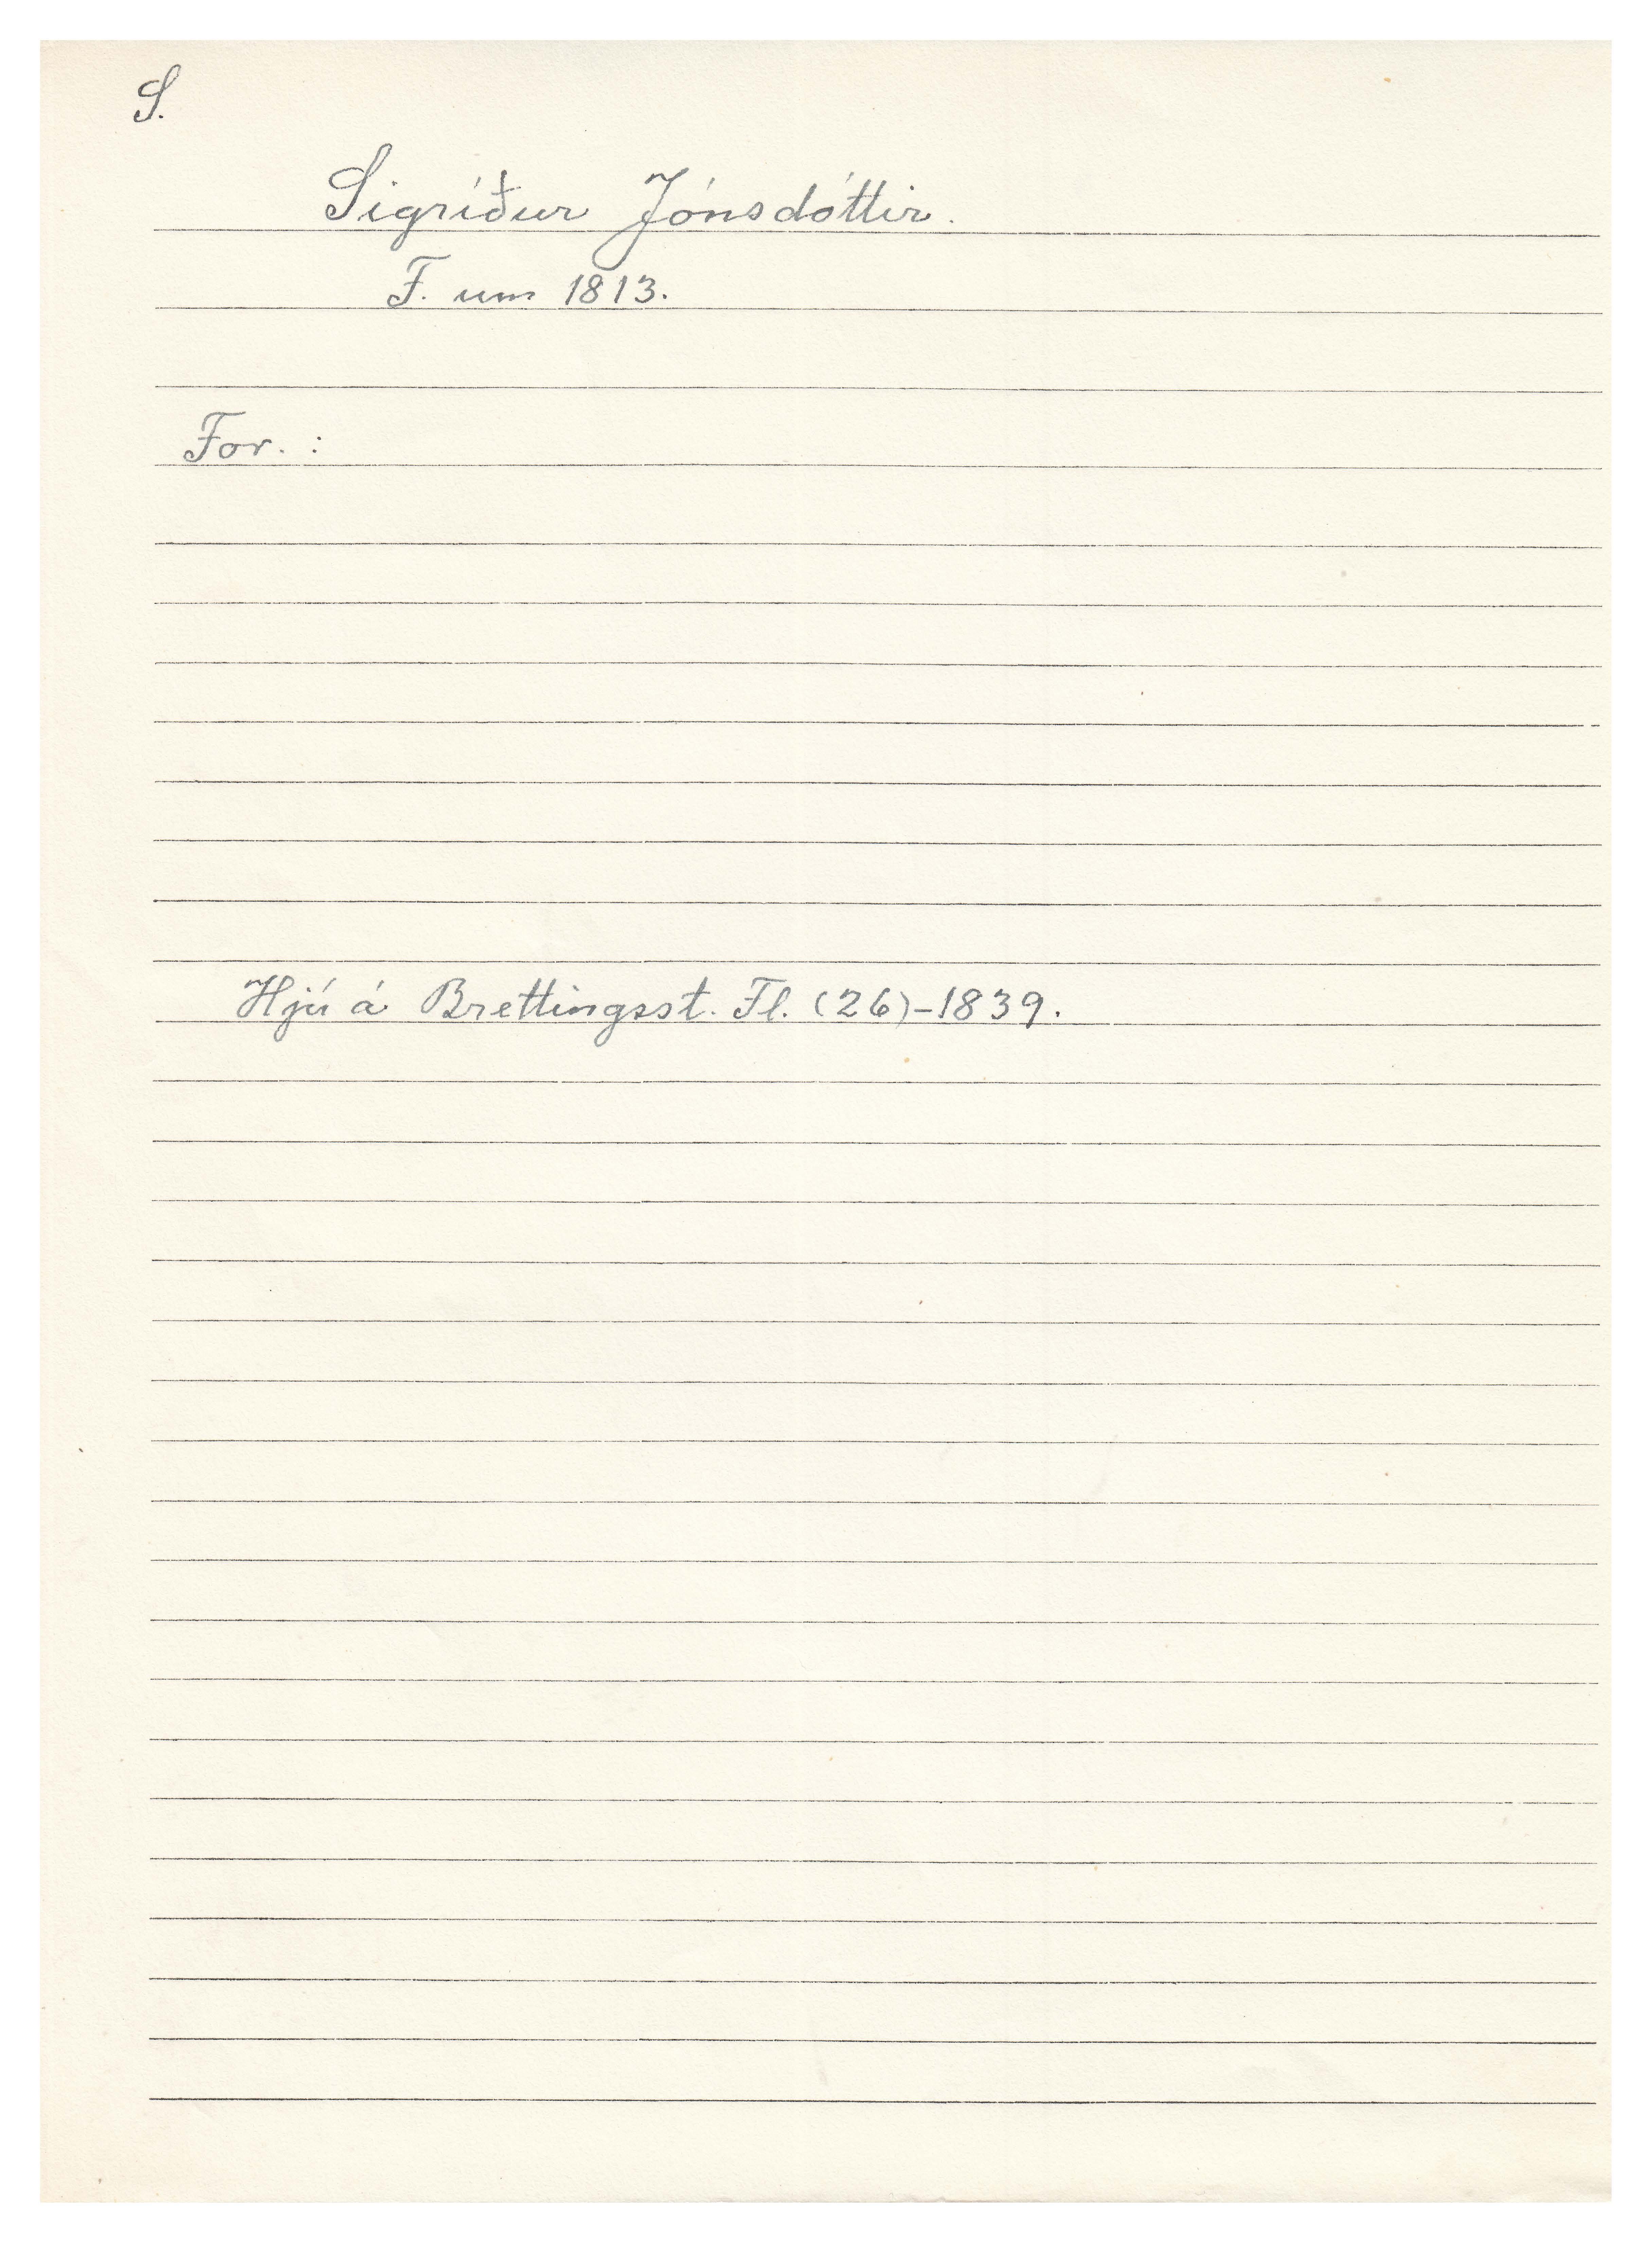 S.
Sigríður Jónsdóttir.
F. um 1813.
For. :
Hjú á Brettingsst. Fl. (26)-1839.